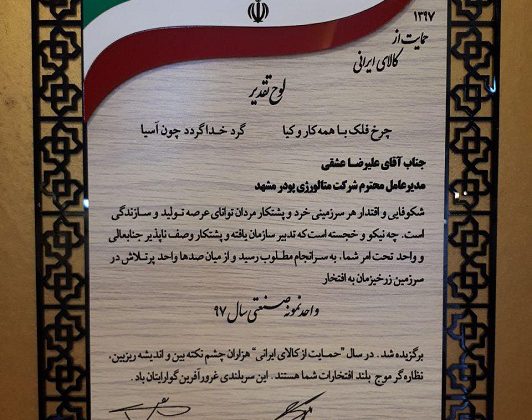 ۱۳۹۷
حمایت از
کالای ایرانی
لوح تقدیر
چرخ فلک با همه کار و کیا گرد خدا گردد چون آسیا
جناب آقای علیرضا عشقی
مدیرعامل محترم شرکت متالورژی پودر مشهد
شکوفایی و اقتدار هر سرزمینی خرد و پشتکار مردان توانای عرصه تولید و سازندگی
است. چه نیکو و خجسته است که تدبیر سازمان یافته و پشتکار وصف ناپذیر جنابعالی
و واحد تحت امر شما، به سرانجام مطلوب رسید و از میان صدها واحد پرتلاش در
سرزمین زرخیزمان به افتخار
واحد نمونه صنعتی سال ۹۷
برگزیده شد. در سال "حمایت از کالای ایرانی" هزاران چشم نکته بین و اندیشه ریزبین،
نظاره گر موج بلند افتخارات شما هستند. این سربلندی غرورآفرین گوارایتان باد.